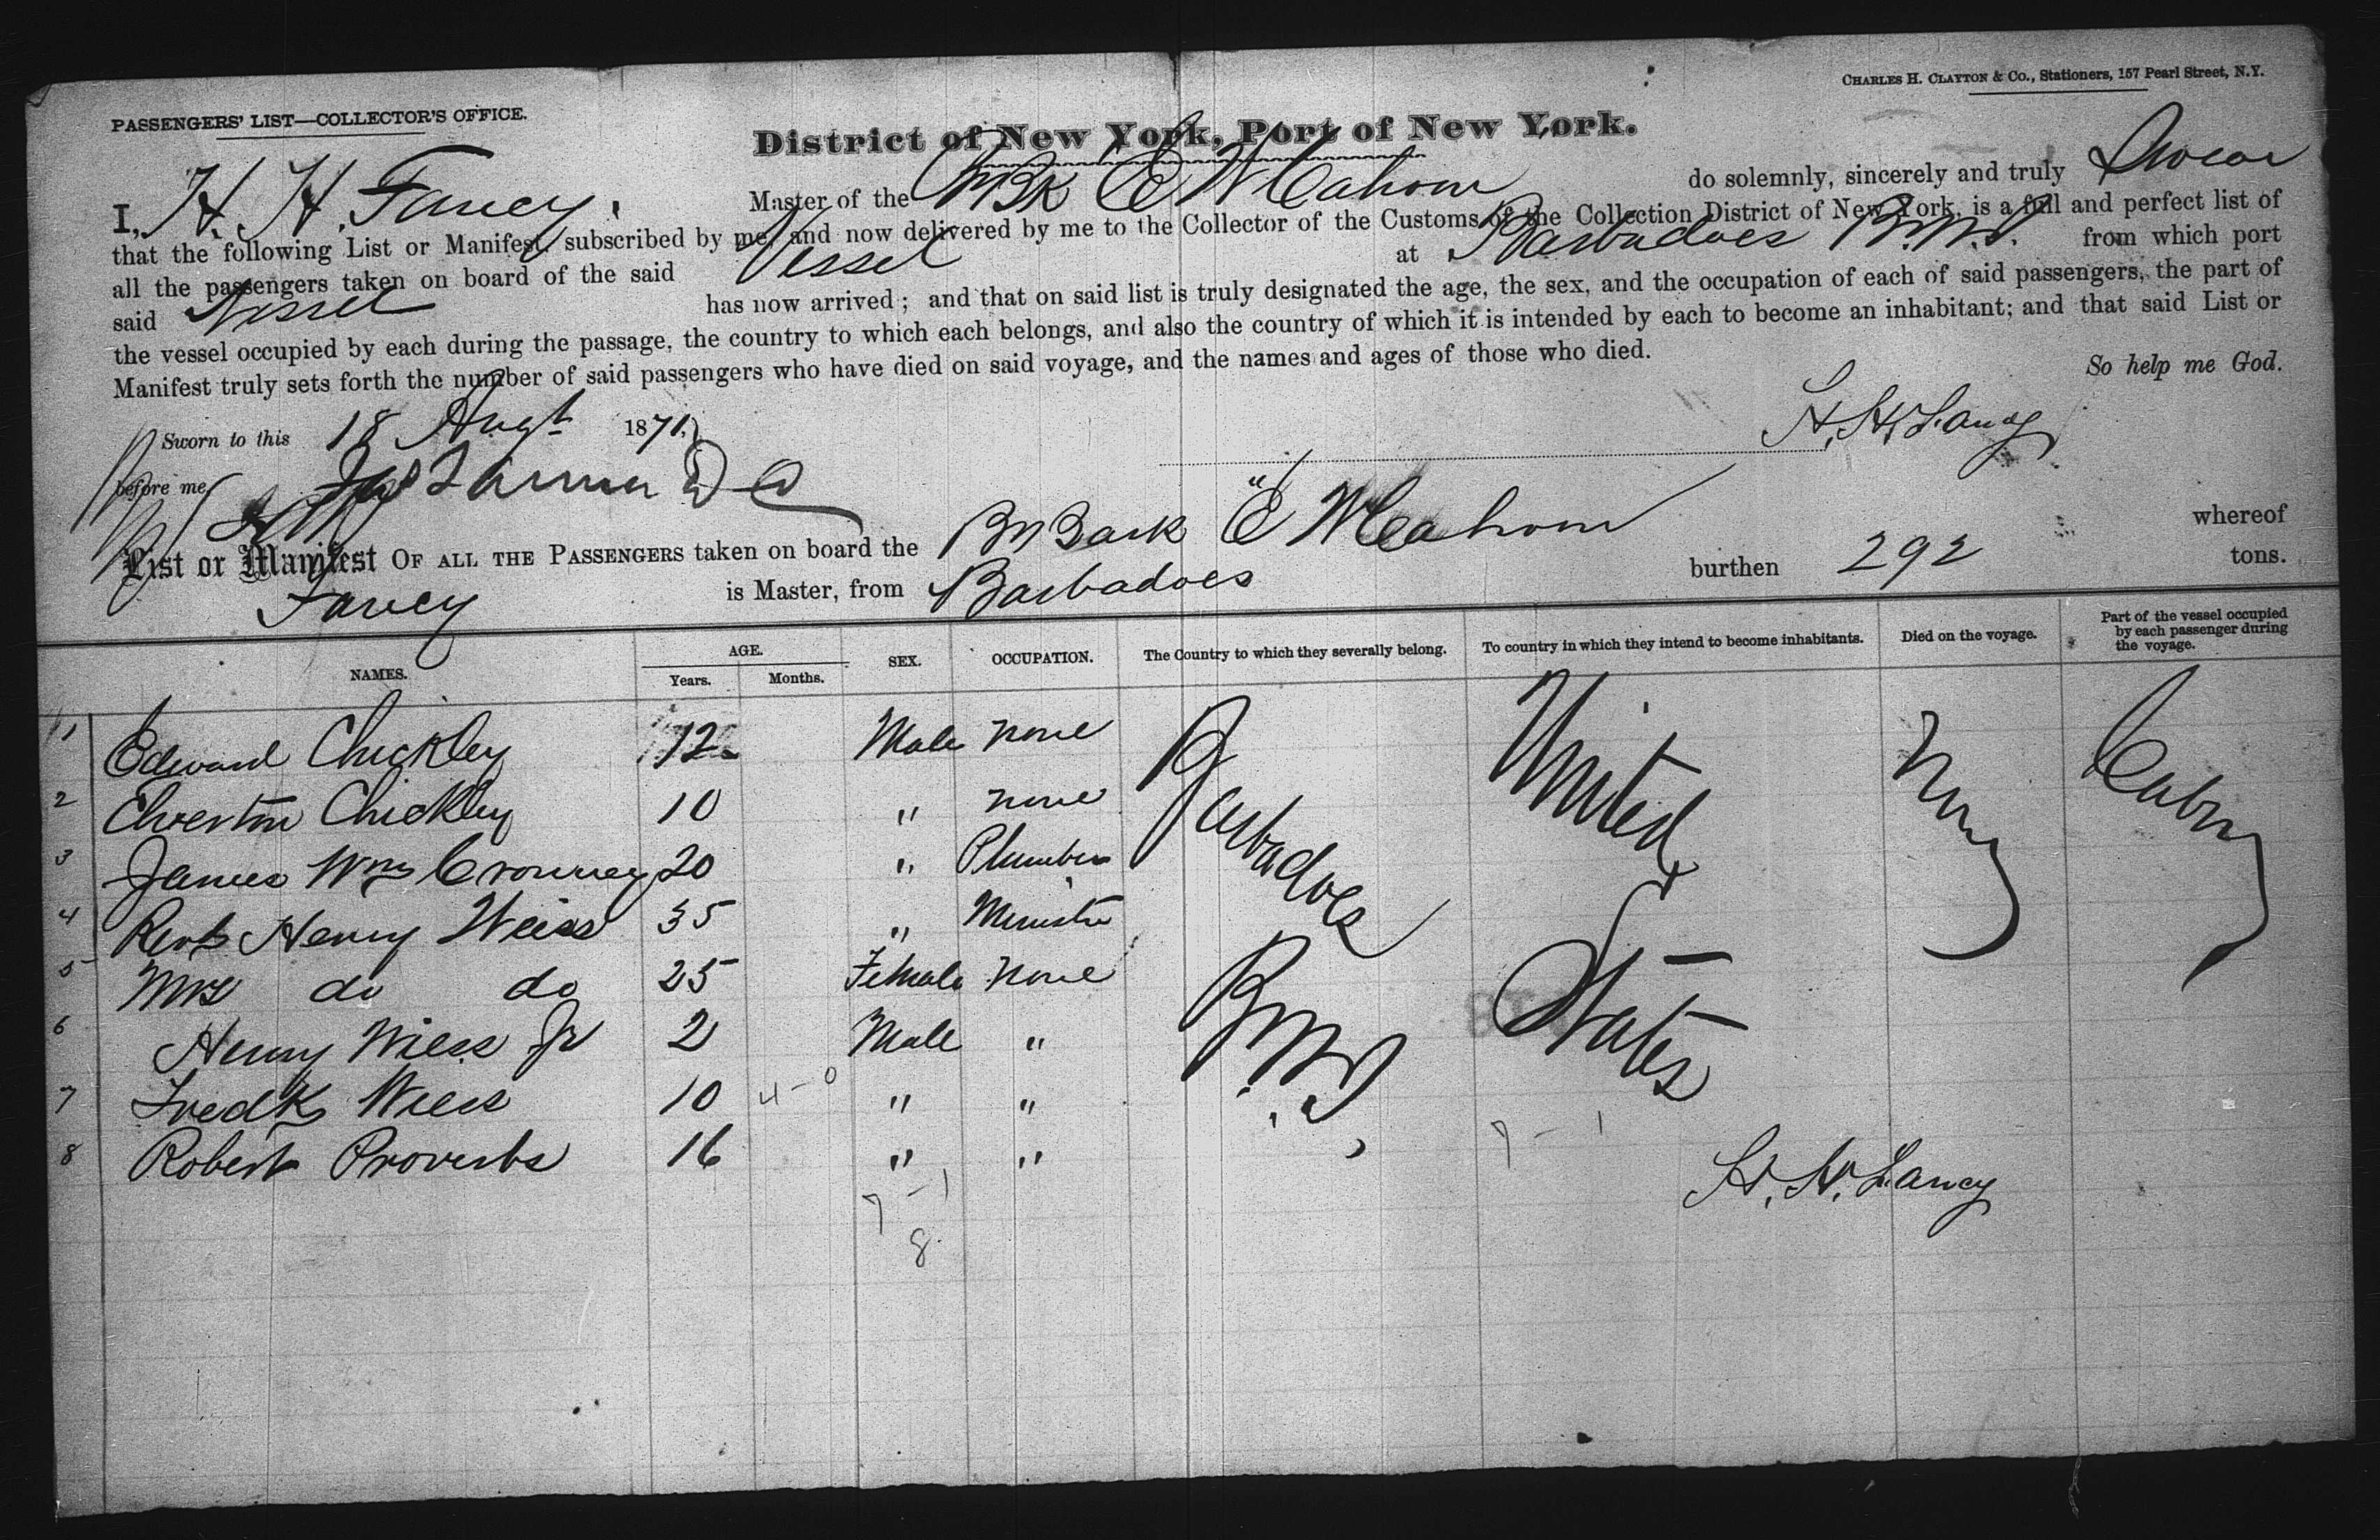 CHARLES H. CLAYTON & Co., Stationers, 157 Pearl Street, N.Y.
PASSENGERS' LIST—COLLECTOR'S OFFICE.
District of New York, Port of New York.
I, H. H. Fancy, Master of the Br Bk E W Cahoon do solemnly, sincerely and truly Swear
that the following List or Manifest, subscribed by me, and now delivered by me to the Collector of the Customs of the Collection District of New York, is a full and perfect list of
all the passengers taken on board of the said Vessel at Barbadoes B.W.I. from which port
said Vessel has now arrived; and that on said list is truly designated the age, the sex, and the occupation of each of said passengers, the part of
the vessel occupied by each during the passage, the country to which each belongs, and also the country of which it is intended by each to become an inhabitant; and that said List or
Manifest truly sets forth the number of said passengers who have died on said voyage, and the names and ages of those who died.
So help me God.
Sworn to this 18 Augt 1871,
H. H. Fancy
before me
List or Manifest OF ALL THE PASSENGERS taken on board the Br Bark "E W Cahoon whereof
Fancy is Master, from Barbadoes burthen 292 tons.
NAMES. AGE. Years. Months. SEX. OCCUPATION. The Country to which they severally belong. To country in which they intend to become inhabitants. Died on the voyage. Part of the vessel occupied by each passenger during the voyage.
1 Edward Chickley 12 Male none Barbadoes B.W.I. United States None Cabin
2 Elverton Chickley 10 " none
3 James Wm Crowney 20 " Plumber
4 Revd Henry Weiss 35 " Minister
5 Mrs do do 25 Female none
6 Henry Wiess Jr 2 Male "
7 Fredk Wiess 10 4-0 " "
8 Robert Proverbs 16 " "
7-1
7-1
8
H. H. Fancy